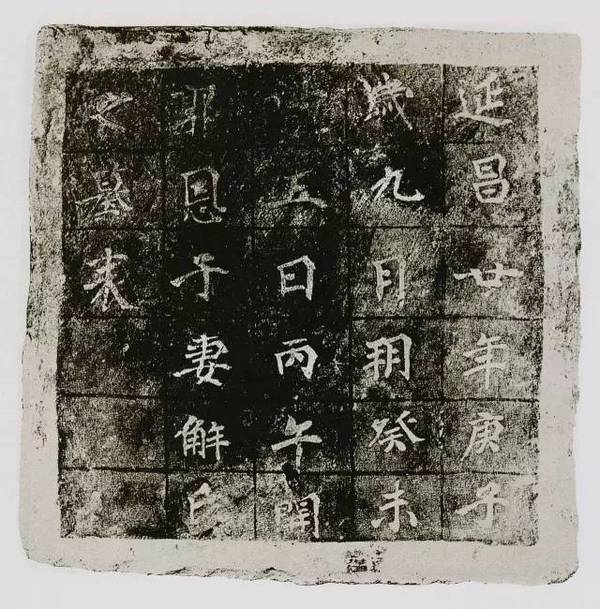 延昌廿年庚子
歲九月朔癸未
五日丙午開
郭恩子妻解氏
之墓表